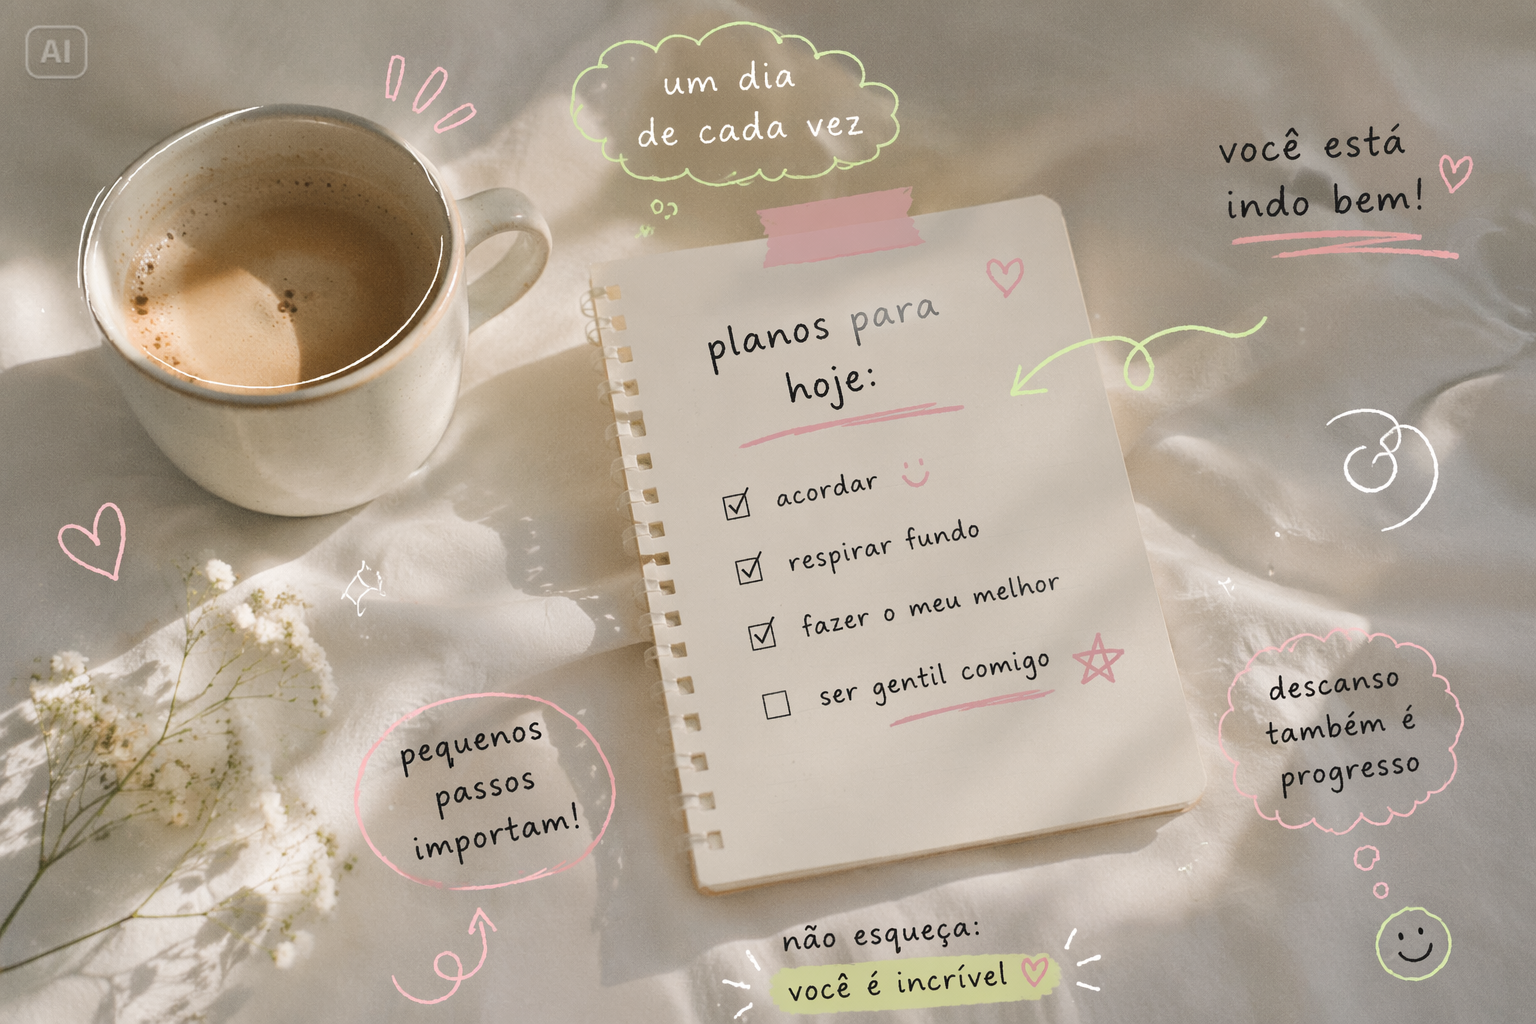 AI
um dia
de cada vez
você está
indo bem!
planos para
hoje:
acordar
respirar fundo
fazer o meu melhor
ser gentil comigo
pequenos
passos
importam!
descanso
também é
progresso
não esqueça:
você é incrível